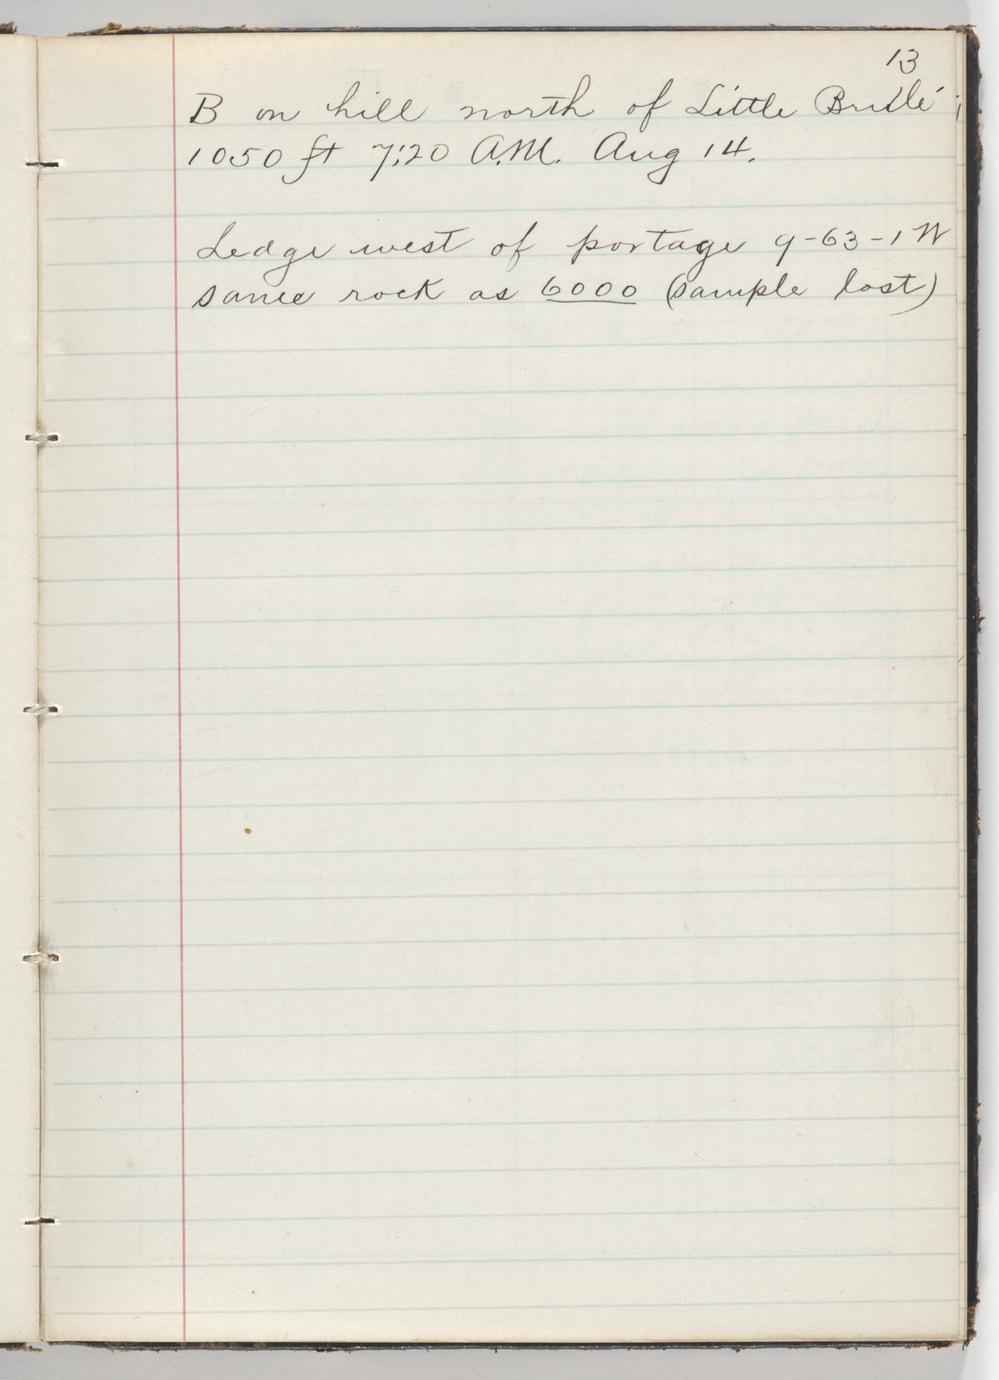 13
B on hill north of Little Brulé;
1050 ft 7:20 A.M. Aug 14.
Ledge west of portage 9-63-1 W
same rock as 6000 (sample lost)